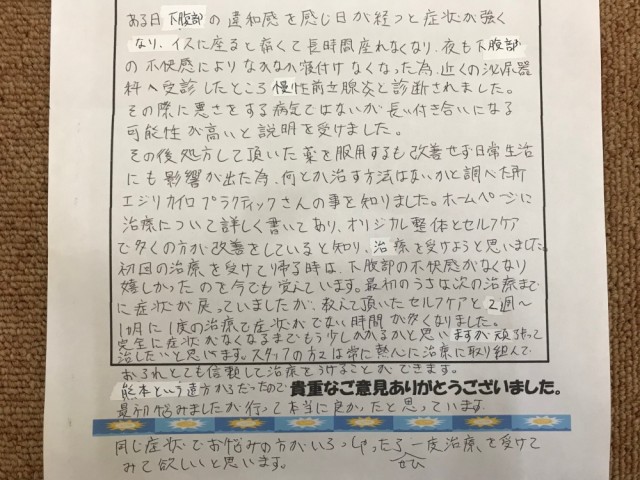 ある日下腹部の違和感を感じ日が経つと症状が強く
なり、イスに座ると痛くて長時間座れなくなり、夜も下腹部
の不快感によりなかなか寝付けなくなった為、近くの泌尿器
科へ受診したところ慢性前立腺炎と診断されました。
その際に悪さをする病気ではないが長い付き合いになる
可能性が高いと説明を受けました。
その後処方して頂いた薬を服用するも改善せず日常生活
にも影響が出た為、何とか治す方法はないかと調べた所
エジリカイロプラクティックさんの事を知りました。ホームページに
治療について詳しく書いてあり、オリジナル整体とセルフケア
で多くの方が改善をしていると知り、治療を受けようと思いました。
初回の治療を受けて帰る時は、下腹部の不快感がなくなり
嬉しかったのを今でも覚えています。最初のうちは次の治療まで
に症状が戻っていましたが、教えて頂いたセルフケアと2週〜
1か月に1度の治療で症状がでない時間が多くなりました。
完全に症状がなくなるまでもう少しかかるかと思いますが頑張って
治したいと思います。スタッフの方々は常に熱心に治療に取り組んで
おられとても信頼して治療をうけることができます。
熊本という遠方からだったので
貴重なご意見ありがとうございました。
最初悩みましたが行って本当に良かったと思っています。
同じ症状でお悩みの方がいらっしゃったら一度治療を受けて
ぜひ
みて欲しいと思います。